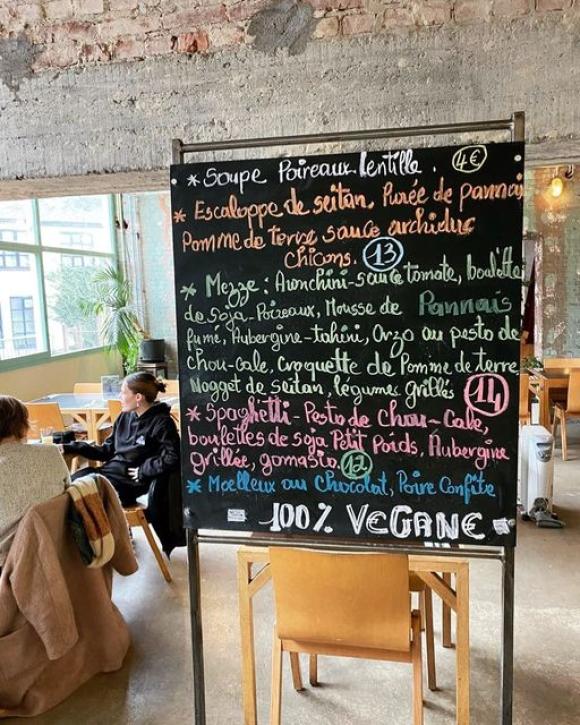 * Soupe Poireaux lentille. 4€
* Escaloppe de seitan, Purée de pannai
Pomme de terre sauce archiduc
chicons. 13
* Mezze : Aronchini-sauce tomate, boulette
de soja-Poireaux, Mousse de Pannais
fumé, Aubergine-tahini, Orzo au pesto de
chou-cale, Croquette de Pomme de terre
Nogget de seitan, légumes grillés 14
* Spaghetti-Pesto de Chou-Cale,
boulettes de soja Petit Poids, Aubergine
grillée, gomasio 12
* Moelleux au Chocolat, Poire Confite
100% VEGANE